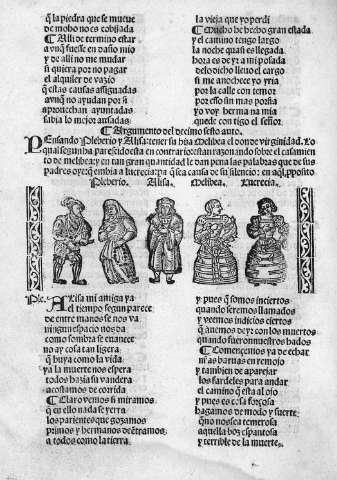 q̄ la piedra que se mueue
de moho no es cobijada
¶ Alli de termino estar
avnq̄ fuesse en daño mio
y de alli no me mudar
si quiera por no pagar
el alquiler de vazio
que estas causas assiguadas
avnq̄ no ayudan por si
aprouechan ayuntadas
sabia lo mejor ansadas.
la vieja que yo perdi
¶ Mucho he hecho gran estada
y el camino tengo largo
la noche quasi es llegada
hora es de yr a mi posada
delo dicho lleuo el cargo
si me anochece yo yria
por la calle con temor
por esso sin mas porfia
yo voy hermana mia
quede con tigo el señor.
¶ Argumento del decimo sesto auto.
PEnsando Pleberio y Alisa tener su hija Melibea el don de virginidad. Lo
qual segun ha parescido esta en contrario: estan razonando sobre el casamien
to de melibea: y en tan gran quantidad le dan pena las palabras que de sus
padres oye: q̄ embia a lucrecia: pa q̄ sea causa de su silencio: en aq̄l p̄posito
Pleberio. Alisa. Melibea. Lucrecia.
Ple. ALisa mi amiga ya
el tiempo segun parece
de entre manos se nos va
ningun espacio nos da
como sombra se euanece
no ay cosa tan ligera
q̄ huya como la vida
ya la muerte nos espera
todos hazia su vandera
acostamos de corrida
¶ Claro vemos si miramos
que en ello nada se yerra
los parientes que gozamos
primos y hermanos de entramos
a todos come la tierra.
y pues q̄ somos inciertos
quando seremos llamados
y veemos indicios ciertos
q̄ auemos de yr con los muertos
quando fueron nuestros hados
¶ Comencemos ya de echar
ni as baruas en remojo
y tambien de aparejar
los fardeles para andar
el camino q̄ esta al ojo
y pues es cosa forçosa
hagamos de modo y suerte
q̄ no nos sea temerosa
aquella boz espantosa
y terrible de la muerte.